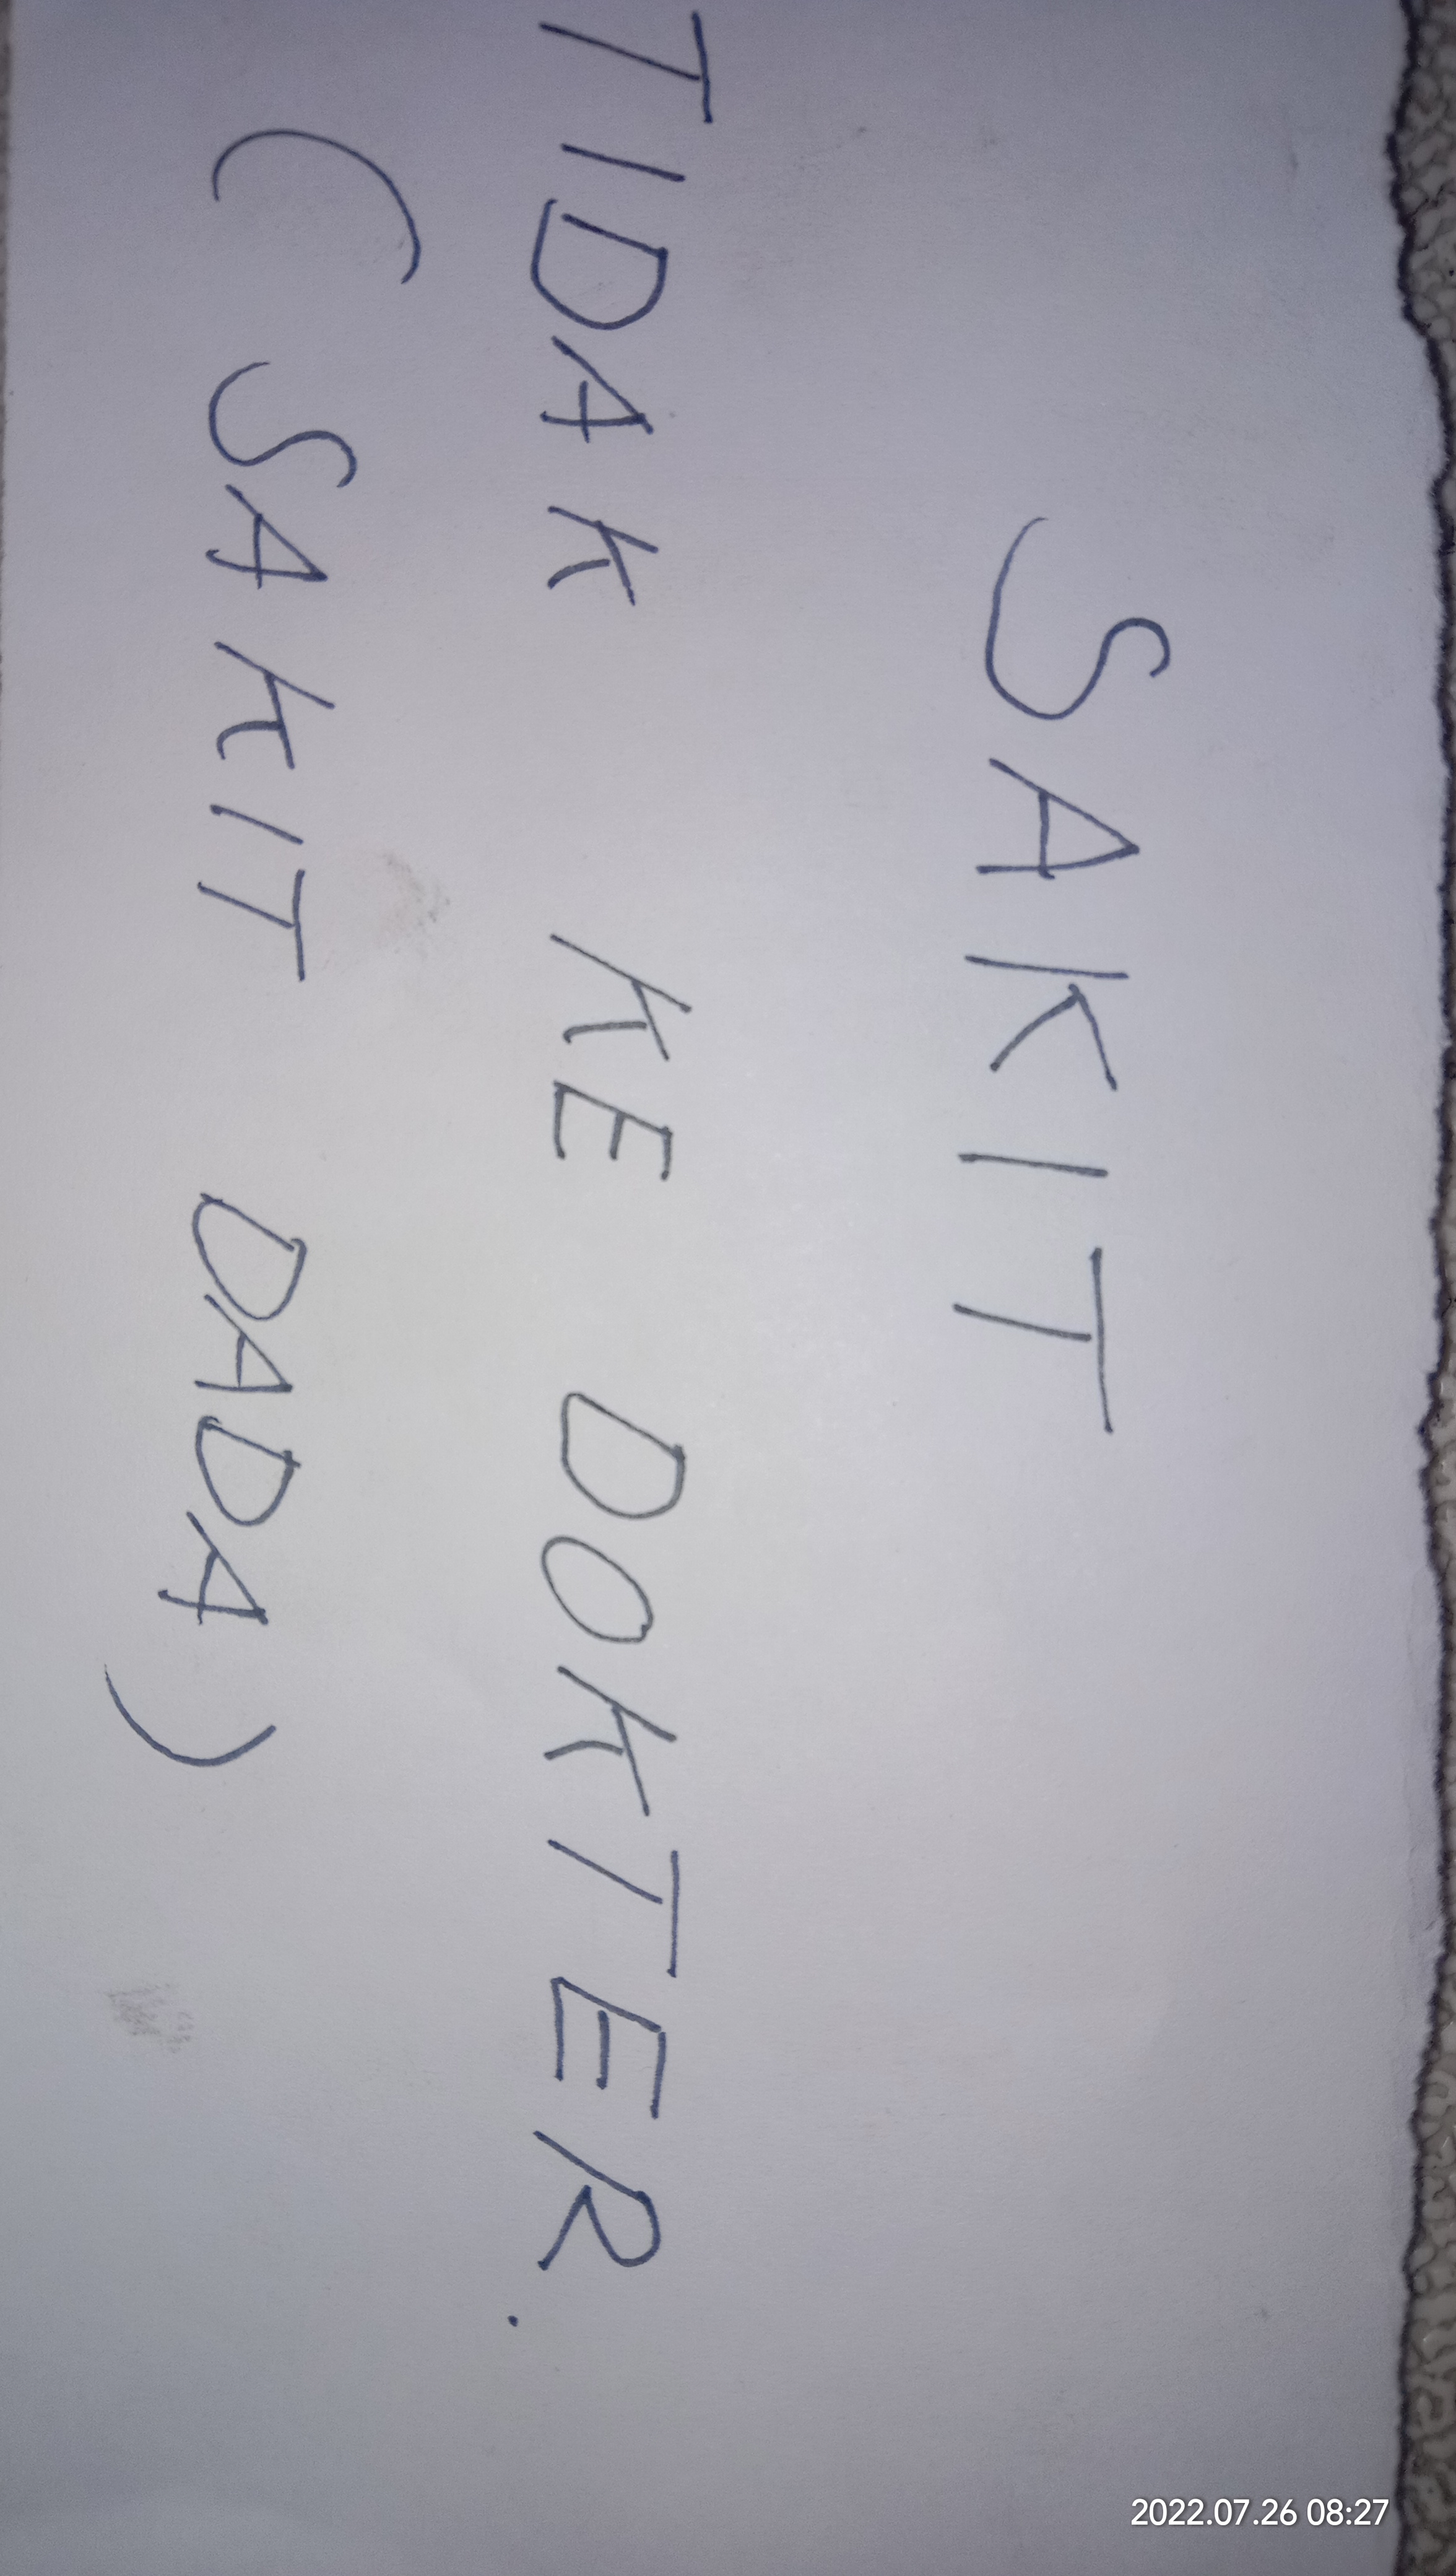 SAKIT
TIDAK KE DOKTER.
( SAKIT DADA )
2022.07.26 08:27